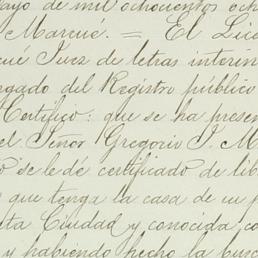 ayo de mil ochocientos och
Marcué. = El Lice
cué Juez de letras interin
rgado del Registro público
Certifico: que se ha presen
el Señor Gregorio J. M
o se le dé certificado de lib
s que tenga la casa de un p
sta Ciudad y conocida co
y habiendo hecho la busc